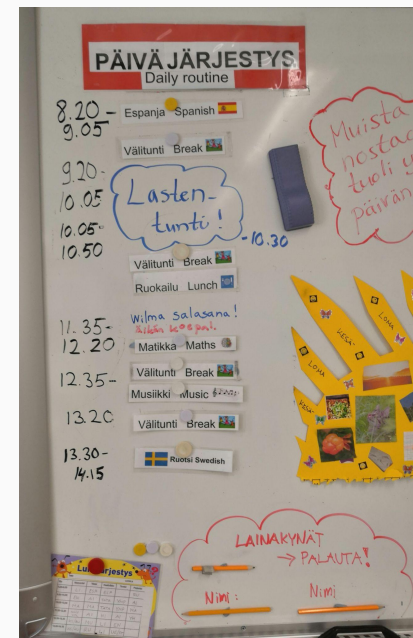 PÄIVÄJÄRJESTYS
Daily routine
8.20-
9.05
Espanja Spanish
Välitunti Break
9.20-
10.05
Lasten-
tunti!
10.05-
10.50
-10.30
Välitunti Break
Ruokailu Lunch
Wilma salasana!
11.35-
12.20
Matikka Maths
Välitunti Break
12.35-
Musiikki Music
13.20
Välitunti Break
13.30-
14.15
Ruotsi Swedish
Muista
nostaa
tuoli y
päivän
LOMA
KESÄ
LOMA
LOMA
KESÄ
LAINAKYNÄT
→ PALAUTA!
Nimi:
Nimi